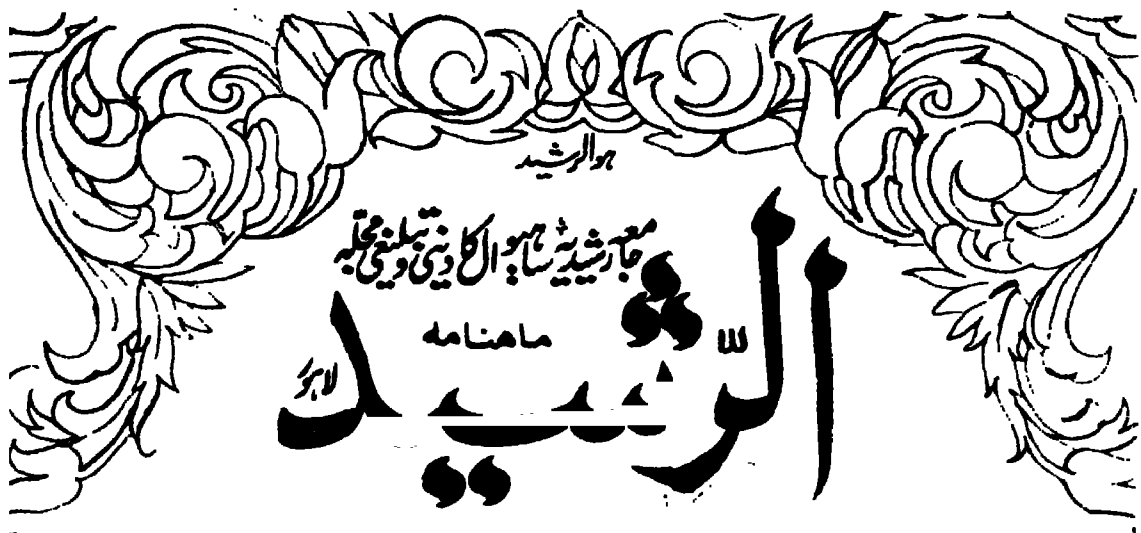 ہوالرشید
جامعہ رشیدیہ ساہیوال کا دینی و تبلیغی مجلہ
ماهنامه
الرّشید
لاہور